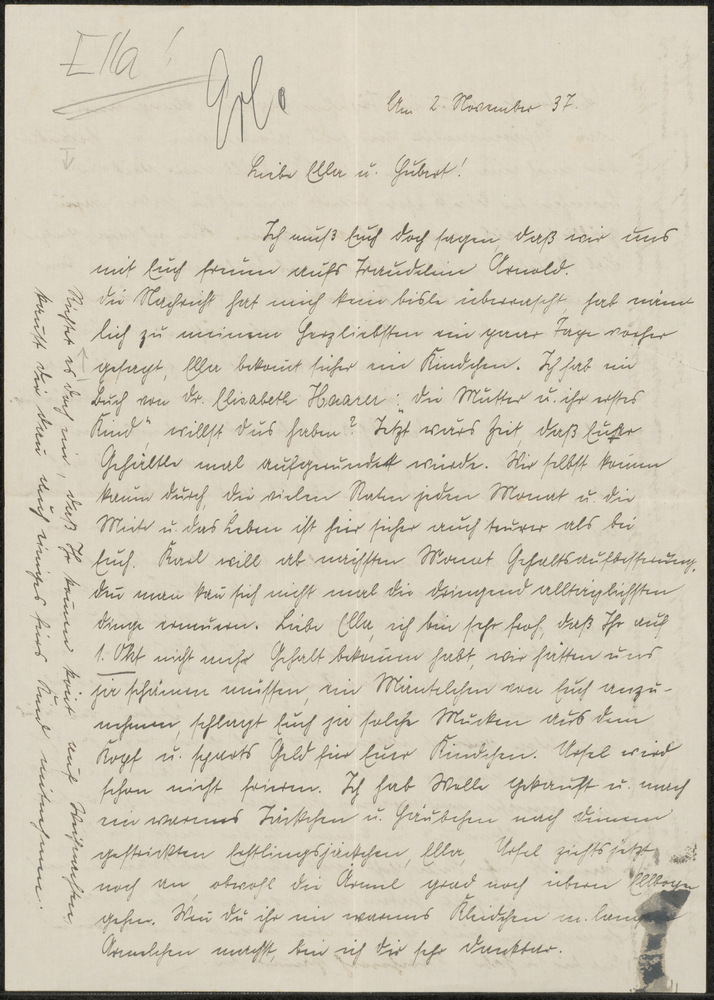 Ella!
Erl.
Am 2. November 37.
Liebe Ella u. Hubert!
Ich muß Euch doch sagen, daß wir uns
mit Euch freuen aufs Traudelein Arnold.
Die Nachricht hat mich kein bisle überrascht, hab näm-
lich zu meinem Herzliebsten ein paar Tage vorher
gesagt, Ella bekommt sicher ein Kindchen. Ich hab ein
Buch von Dr. Elisabeth Haarer: „Die Mutter u. ihr erstes
Kind", willst Dus haben? Jetzt wärs Zeit, daß Euer
Gehältle mal aufgerundet würde. Wir selbst kommen
kaum durch die vielen Raten jeden Monat u. die
Miete u. das Leben ist hier sicher auch teurer als bei
Euch. Karl will ab nächsten Monat Gehaltsaufbesserung,
den man kan sich nicht mal die dringend alltäglichsten
Dinge erneuern. Liebe Ella, ich bin sehr froh, daß Ihr auf
1. Okt nicht mehr Gehalt bekommen habt, wir hätten uns
ja schämen müssen, ein Mäntelchen von Euch anzu-
nehmen, schlagt Euch ja solche Mucken aus dem
Kopf u. sparts Geld für Euer Kindchen. Ursel wird
schon nicht frieren. Ich hab Wolle gekauft u. mach
ein warmes Jäckchen u. Häubchen nach Deinem
gestrickten Erstlingsjäckchen, Ella, Ursel ziehts jetzt
noch an, obwohl die Ärmel grad noch übern Ellbogen
gehen. Wen Du ihr ein warmes Kleidchen m. langen
Ärmelchen machst, bin ich Dir sehr dankbar.
Richtet es doch ein, daß Ihr kommen könt auf Weihnachten,
könt Ihr dan auch einiges fürs Kind mitnehmen.